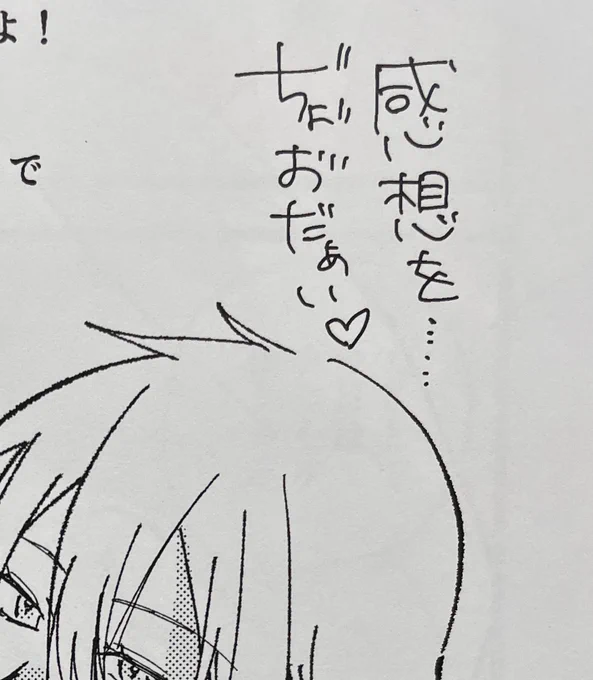 感想を……
ぢょ゛お゛だぁい♡
よ！
で